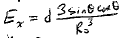 E_x = d \frac{3 \sin\theta \cos\theta}{R_0^3}